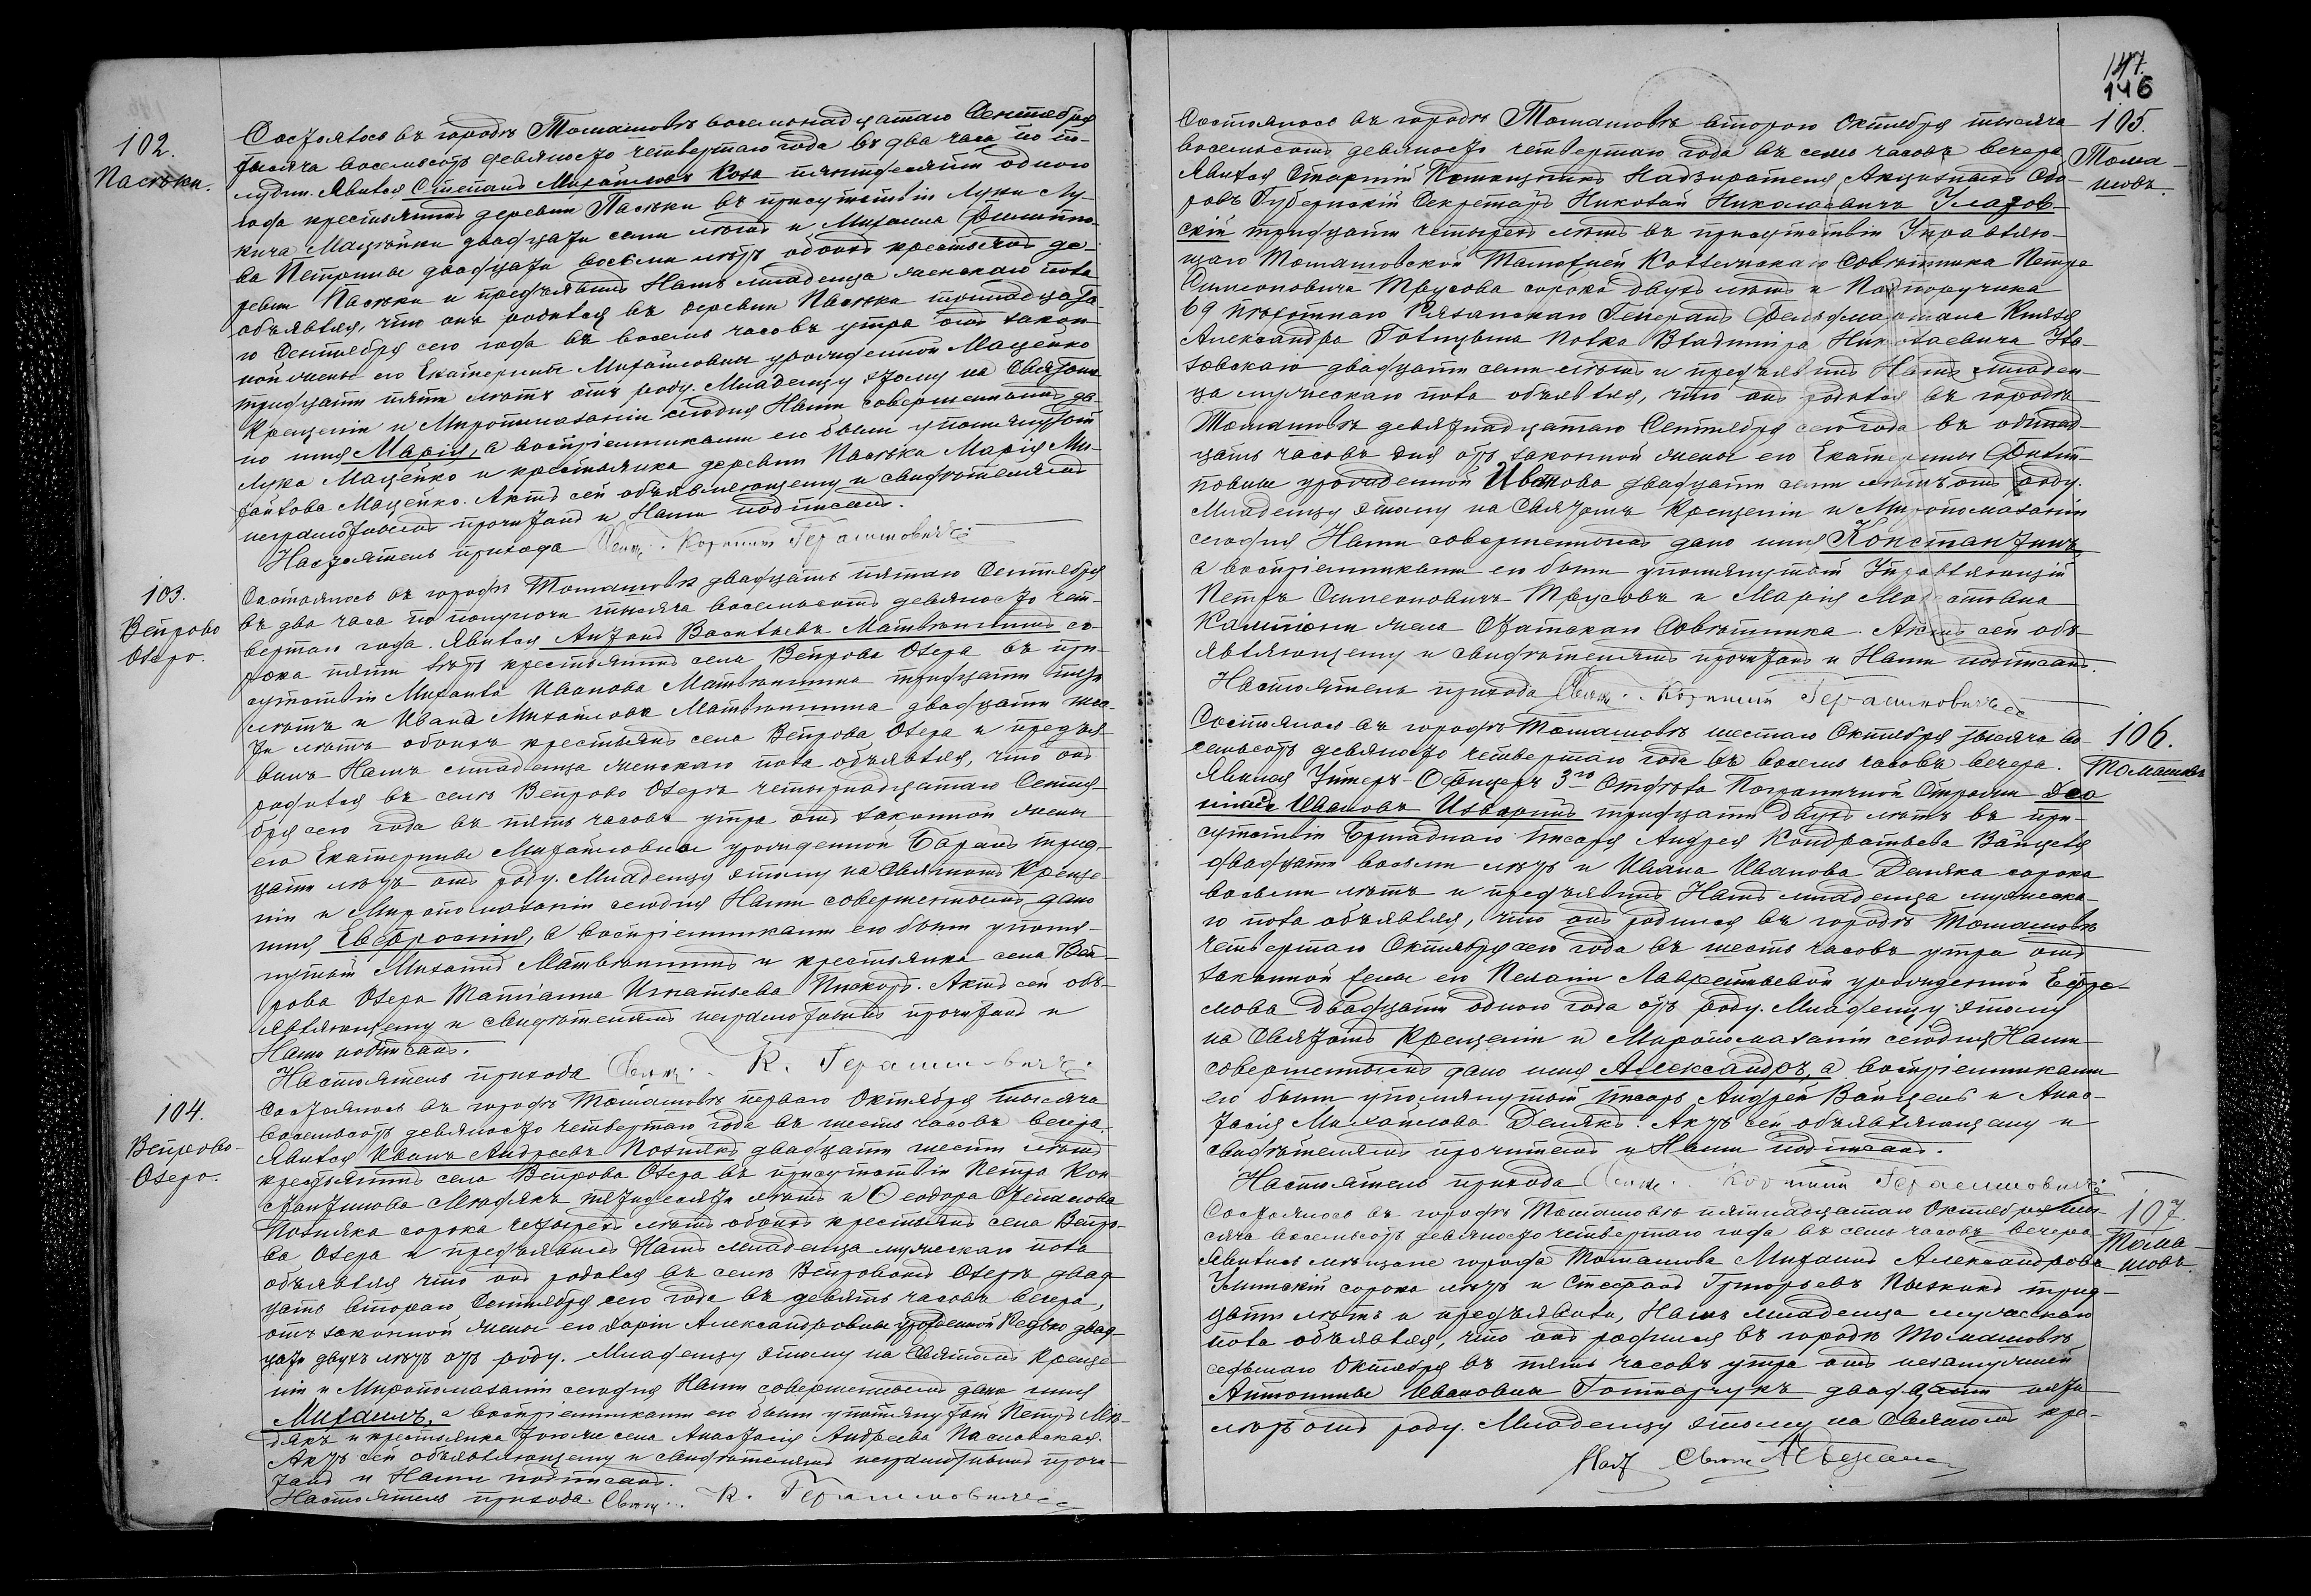 102.
Пасѣки.
Состоялось въ городѣ Томашовѣ восемнадцатаго Сентября
тысяча восемьсотъ девяносто четвертаго года въ два часа по по-
лудни. Явился Степанъ Михайловъ Коза пятидесяти одного
года крестьянинъ деревни Пасѣки въ присутствіи Луки Лу-
кича Мацейки двадцати семи лѣтъ и Михаила Филиппо-
ва Петрины двадцати восьми лѣтъ обоихъ крестьянъ де-
ревни Пасѣки и предъявилъ Намъ младенца женскаго пола
объявляя, что онъ родился въ деревни Пасѣки тринадцата-
го Сентября сего года въ восемь часовъ утра отъ закон-
ной жены его Екатерины Михайловны урожденной Маценко
тридцати пяти лѣтъ отъ роду. Младенцу этому на Святомъ
Крещеніи и Миропомазаніи сегодня Нами совершенномъ да-
но имя Марія, а воспріемниками его были упомянутый
Лука Мацейко и крестьянка деревни Пасѣки Марія Ми-
хайлова Мацейко. Актъ сей объявляющему и свидѣтелямъ
неграмотнымъ прочитанъ и Нами подписанъ.
Настоятель прихода Свящ. Корнилій Герасимовичъ
103.
Вепрово
Озеро.
Состоялось въ городѣ Томашовѣ двадцать пятаго Сентября
въ два часа по полуночи тысяча восемьсотъ девяносто чет-
вертаго года. Явился Антонъ Васильевъ Матвѣишинъ со-
рока пяти лѣтъ крестьянинъ села Вепрова Озера въ при-
сутствіи Михаила Иванова Матвѣишина тридцати пяти
лѣтъ и Ивана Михайлова Матвѣишина двадцати шес-
ти лѣтъ обоихъ крестьянъ села Вепрова Озера и предъя-
вилъ Намъ младенца женскаго пола объявляя, что онъ
родился въ селѣ Вепрово Озерѣ четырнадцатаго Сентя-
бря сего года въ пять часовъ утра отъ законной жены
его Екатерины Михайловны урожденной Баранъ трид-
цати лѣтъ отъ роду. Младенцу этому на Святомъ Креще-
ніи и Миропомазаніи сегодня Нами совершенномъ дано
имя Евфросинія, а воспріемниками его были упомя-
нутый Михаилъ Матвѣишинъ и крестьянка села Веп-
рова Озера Татіанна Игнатьева Пискоръ. Актъ сей объ-
являющему и свидѣтелямъ неграмотнымъ прочитанъ и
Нами подписанъ.
Настоятель прихода Свящ. К. Герасимовичъ
104.
Вепрово-
Озеро.
Состоялось въ городѣ Томашовѣ перваго Октября тысяча
восемьсотъ девяносто четвертаго года въ шесть часовъ вечера.
Явился Иванъ Андреевъ Познякъ двадцати шести лѣтъ
крестьянинъ села Вепрова Озера въ присутствіи Петра Кон-
стантинова Мѣдякъ пятидесяти лѣтъ и Ѳеодора Степанова
Позняка сорока четырехъ лѣтъ обоихъ крестьянъ села Вепро-
ва Озера и предъявилъ Намъ младенца мужескаго пола
объявляя что онъ родился въ селѣ Вепровомъ Озерѣ двад-
цать втораго Сентября сего года въ девять часовъ вечера,
отъ законной жены его Даріи Александровны урожденной Редько двад-
цати двухъ лѣтъ отъ роду. Младенцу этому на Святомъ Креще-
ніи и Миропомазаніи сегодня Нами совершенномъ дано имя
Михаилъ, а воспріемниками его были упомянутый Петръ Мѣ-
дякъ и крестьянка тогоже села Анастасія Андреева Пасловская.
Актъ сей объявляющему и свидѣтелямъ неграмотнымъ прочи-
танъ и Нами подписанъ.
Настоятель прихода. Свящ. К. Герасимовичъ
147.
146
105.
Тома-
шовъ.
Состоялось въ городѣ Томашовѣ второго Октября тысяча
восемьсотъ девяносто четвертаго года въ семь часовъ вечера
Явился Старшій Помощникъ Надзирателя Акцизныхъ Сбо-
ровъ Губернскій Секретарь Николай Николаевичъ Улазов-
скій тридцати четырехъ лѣтъ въ присутствіи Управляю-
щаго Томашовской Таможней Коллежскаго Совѣтника Петра
Симеоновича Трусова сорока двухъ лѣтъ и Подпоручика
69 пѣхотнаго Рязанскаго Генералъ Фельдмаршала Князя
Александра Голицына Полка Владиміра Николаевича Ула-
зовскаго двадцати семи лѣтъ и предъявилъ Намъ младен-
ца мужескаго пола объявляя, что онъ родился въ городѣ
Томашовѣ девятнадцатаго Сентября сего года въ одинад-
цать часовъ дня отъ законной жены его Екатерины Филип-
повны урожденной Иванова двадцати семи лѣтъ отъ роду.
Младенцу этому на Святомъ Крещеніи и Миропомазаніи
сегодня Нами совершенномъ дано имя Константинъ,
а воспріемниками его были упомянутый Управляющій
Петръ Симеоновичъ Трусовъ и Марія Модестовна
жена Статскаго Совѣтника. Актъ сей объ-
являющему и свидѣтелямъ прочитанъ и Нами подписанъ.
Настоятель прихода Свящ. Корнилій Герасимовичъ
106.
Томашовъ
Состоялось въ городѣ Томашовѣ шестаго Октября тысяча во-
семьсотъ девяносто четвертаго года въ восемь часовъ вечера.
Явился Унтеръ-Офицеръ 3го Отдѣла Пограничной Стражи
Ивановъ тридцати двухъ лѣтъ въ при-
сутствіи Бригаднаго писаря Андрея Кондратьева Вайцеля
двадцати восьми лѣтъ и Ивана Иванова Деняка сорока
восьми лѣтъ и предъявилъ Намъ младенца мужеска-
го пола объявляя, что онъ родился въ городѣ Томашовѣ
четвертаго Октября сего года въ шесть часовъ утра отъ
законной жены его Пелагіи Лаврентьевой урожденной Ефре-
мова двадцати одного года отъ роду. Младенцу этому
на Святомъ Крещеніи и Миропомазаніи сегодня Нами
совершенномъ дано имя Александръ, а воспріемниками
его были упомянутый писарь Андрей Вайцель и Анас-
тасія Михайлова Денякъ. Актъ сей объявляющему и
свидѣтелямъ прочитанъ и Нами подписанъ.
Настоятель прихода Свящ. Корнилій Герасимовичъ
107.
Тома-
шовъ.
Состоялось въ городѣ Томашовѣ пятнадцатаго Октября ты-
сяча восемьсотъ девяносто четвертаго года въ семь часовъ вечера
Явились мѣщане города Томашова Михаилъ Александровъ
сорока лѣтъ и Стефанъ Григорьевъ трид-
цати лѣтъ и предъявили, Намъ младенца мужескаго
пола объявляя, что онъ родился въ городѣ Томашовѣ
седьмаго Октября въ пять часовъ утра отъ незамужней
Антонины Ивановны Гонтарчукъ двадцати пяти
лѣтъ отъ роду. Младенцу этому на Святомъ кре-
Наст. Свящ.